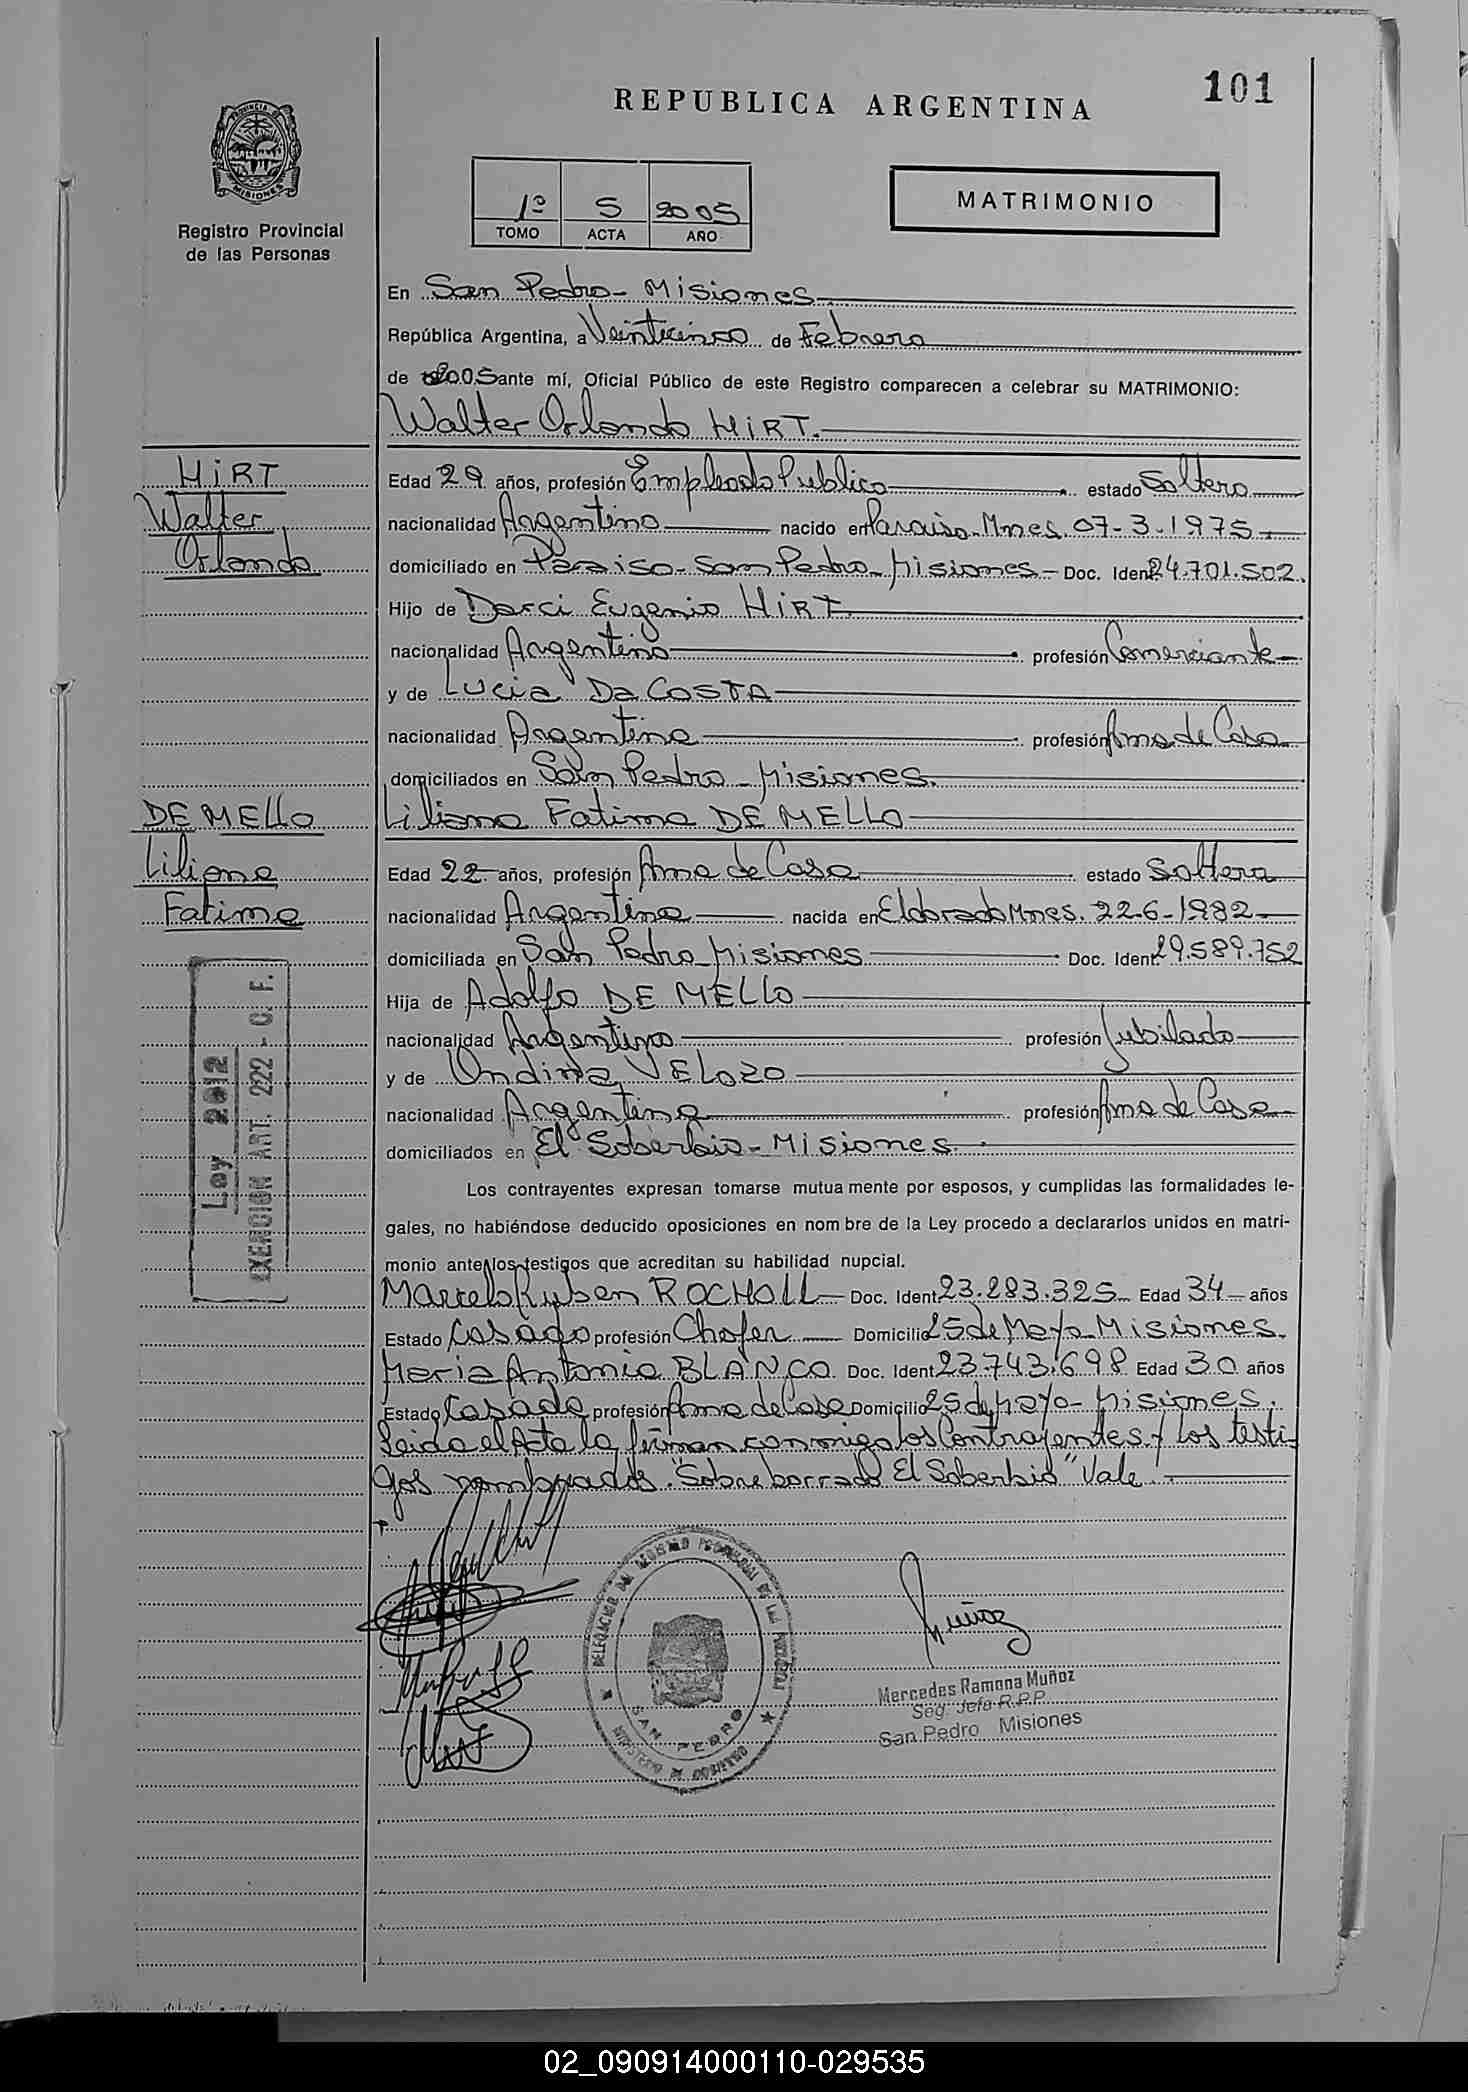 101
REPUBLICA ARGENTINA
PROVINCIA D
MISIONES
Registro Provincial
de las Personas
1º 5 2005
TOMO ACTA AÑO
MATRIMONIO
En San Pedro - Misiones
República Argentina, a Veinticinco de Febrero
de 2005 ante mí, Oficial Público de este Registro comparecen a celebrar su MATRIMONIO:
Walter Orlando HIRT.
HIRT
Walter
Orlando
Edad 29 años, profesión Empleado Publico estado Soltero
nacionalidad Argentino nacido en Paraiso. Mnes. 07-3-1975
domiciliado en Paraiso - San Pedro - Misiones - Doc. Ident 24.701.502.
Hijo de Darci Eugenio HIRT
nacionalidad Argentino profesión Comerciante
y de Lucia Da COSTA
nacionalidad Argentina profesión Ama de Casa
domiciliados en San Pedro - Misiones.
DE MELLO
Liliana
Fatima
Liliana Fatima DE MELLO
Edad 22 años, profesión Ama de Casa estado Soltera
nacionalidad Argentina nacida en Eldorado Mnes. 22-6-1982
domiciliada en San Pedro - Misiones Doc. Ident 29.589.752
Hija de Adolfo DE MELLO
nacionalidad Argentino profesión Jubilado
y de Undina VELOZO
nacionalidad Argentina profesión Ama de Casa
domiciliados en El Soberbio - Misiones.
Ley 2012
EXENCION ART. 222 - C. F.
Los contrayentes expresan tomarse mutua mente por esposos, y cumplidas las formalidades le-
gales, no habiéndose deducido oposiciones en nom bre de la Ley procedo a declararlos unidos en matri-
monio ante los testigos que acreditan su habilidad nupcial.
Marcelo Ruben ROCHOLL - Doc. Ident 23.283.325 Edad 34 años
Estado Casado profesión Chofer Domicilio 25 de Mayo - Misiones.
Maria Antonia BLANCO Doc. Ident 23.743.698 Edad 30 años
Estado Casada profesión Ama de Casa Domicilio 25 de Mayo - Misiones.
Leida el Acta la firman conmigo los Contrayentes y los testi-
gos nombrados. "Sobreborrado El Soberbio" Vale.
DELEGACION DEL REGISTRO PROVINCIAL DE LAS PERSONAS
SAN PEDRO
MINISTERIO DE GOBIERNO
Muñoz
Mercedes Ramona Muñoz
Seg. Jefa R.P.P.
San Pedro Misiones
02_090914000110-029535